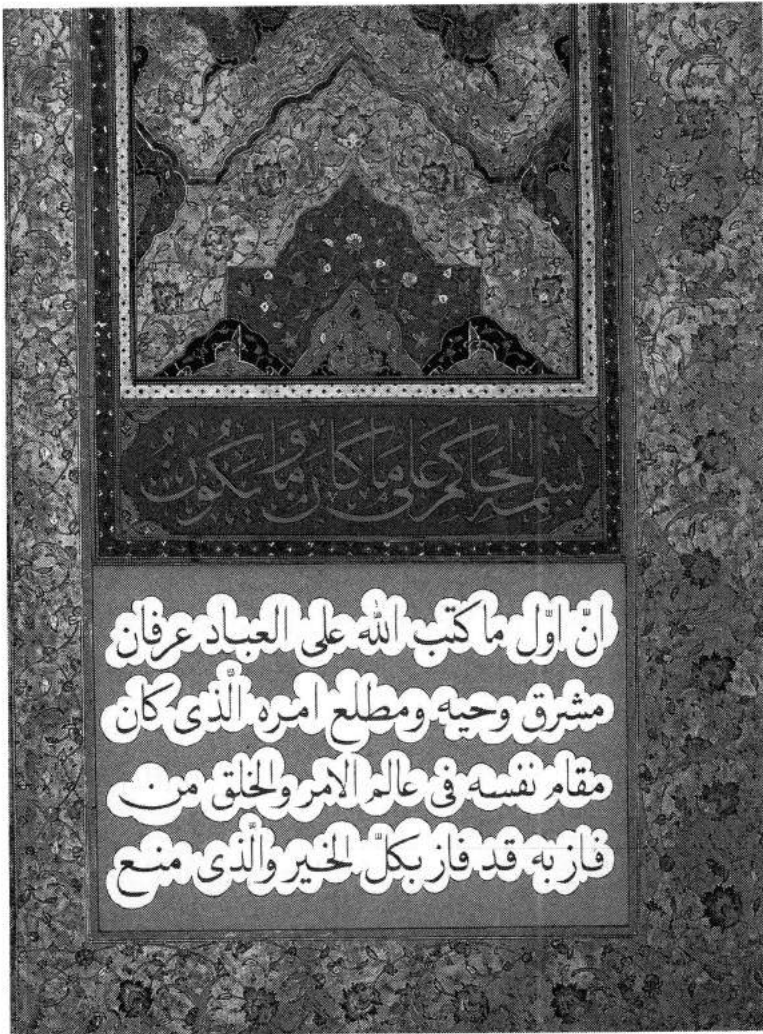 بسمه الحاكم على ما كان وما يكون
انّ اوّل ما كتب الله على العباد عرفان
مشرق وحيه ومطلع امره الَّذى كان
مقام نفسه فى عالم الامر والخلق من
فاز به قد فاز بكلّ الخير والَّذى منع